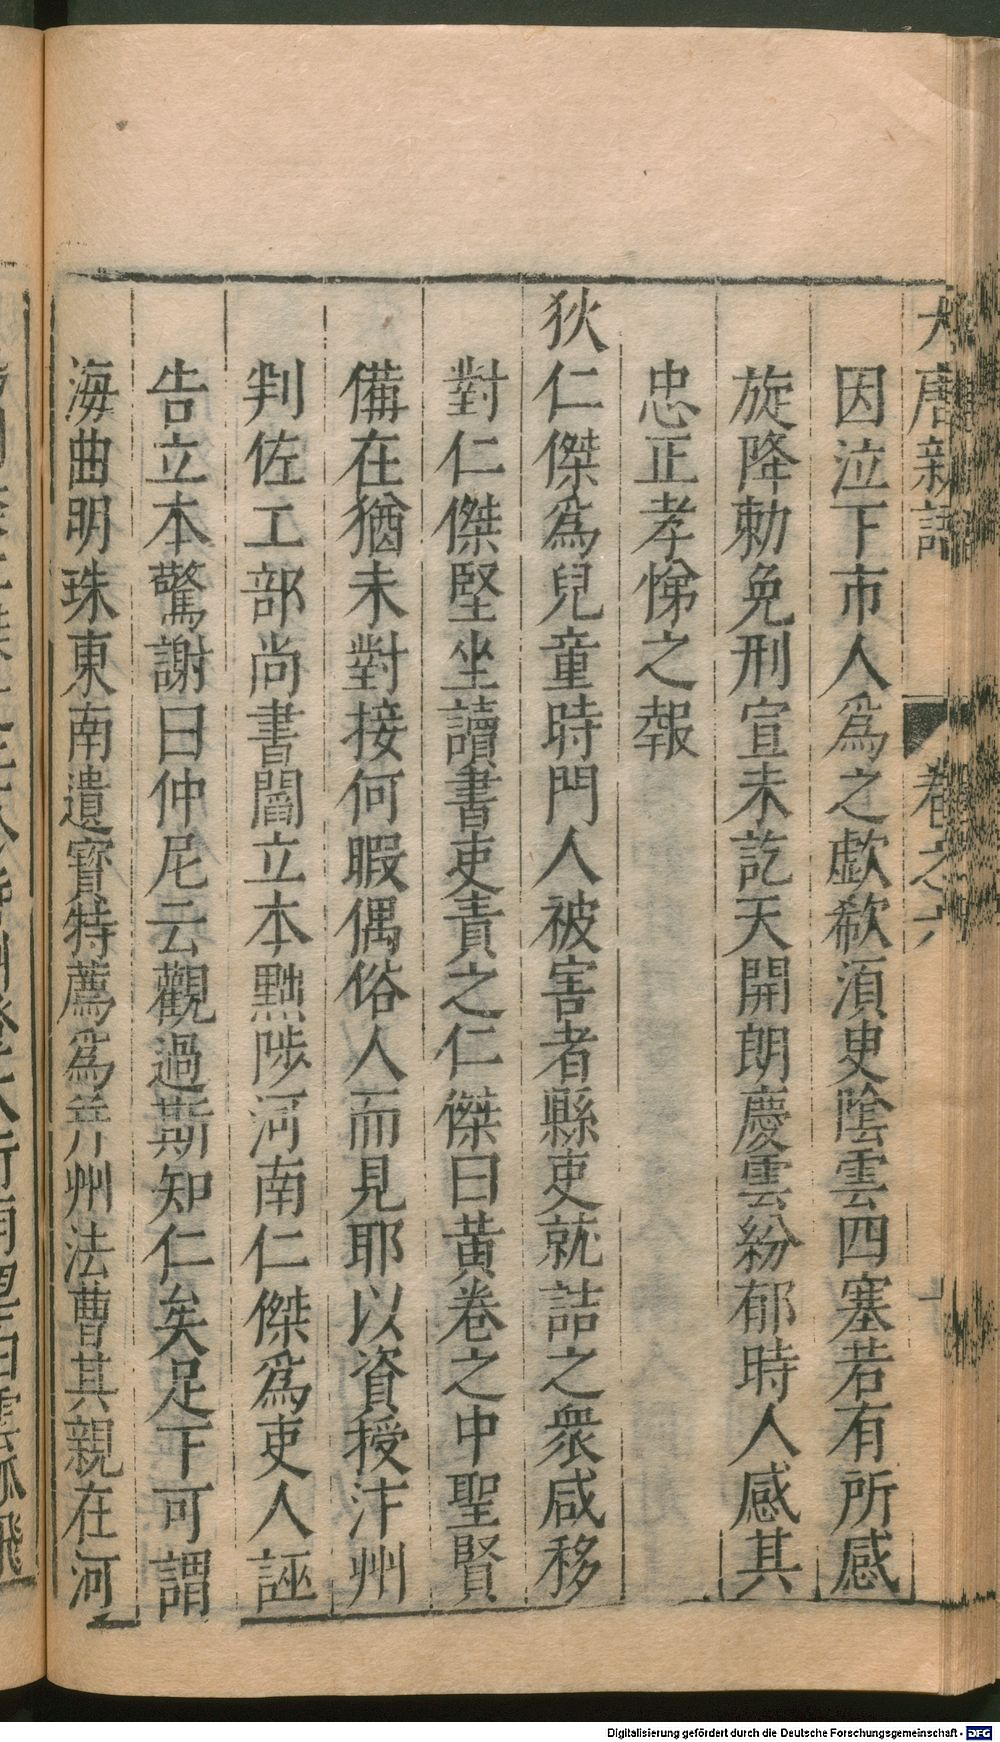 大唐新語 卷之六
因泣下市人爲之歔欷湏臾隂雲四塞若有所感
旋降勅免刑宣未訖天開朗慶雲紛郁時人感其
忠正孝悌之報
狄仁傑爲兒童時門人被害者縣吏就詰之衆咸移
對仁傑堅坐讀書吏責之仁傑曰黃卷之中聖賢
備在猶未對接何暇偶俗人而見耶以資授汴州
判佐工部尚書閻立本黜陟河南仁傑爲吏人誣
告立本驚謝曰仲尼云觀過斯知仁矣足下可謂
海曲明珠東南遺寳特薦爲并州法曹其親在河
Digitalisierung gefördert durch die Deutsche Forschungsgemeinschaft - DFG